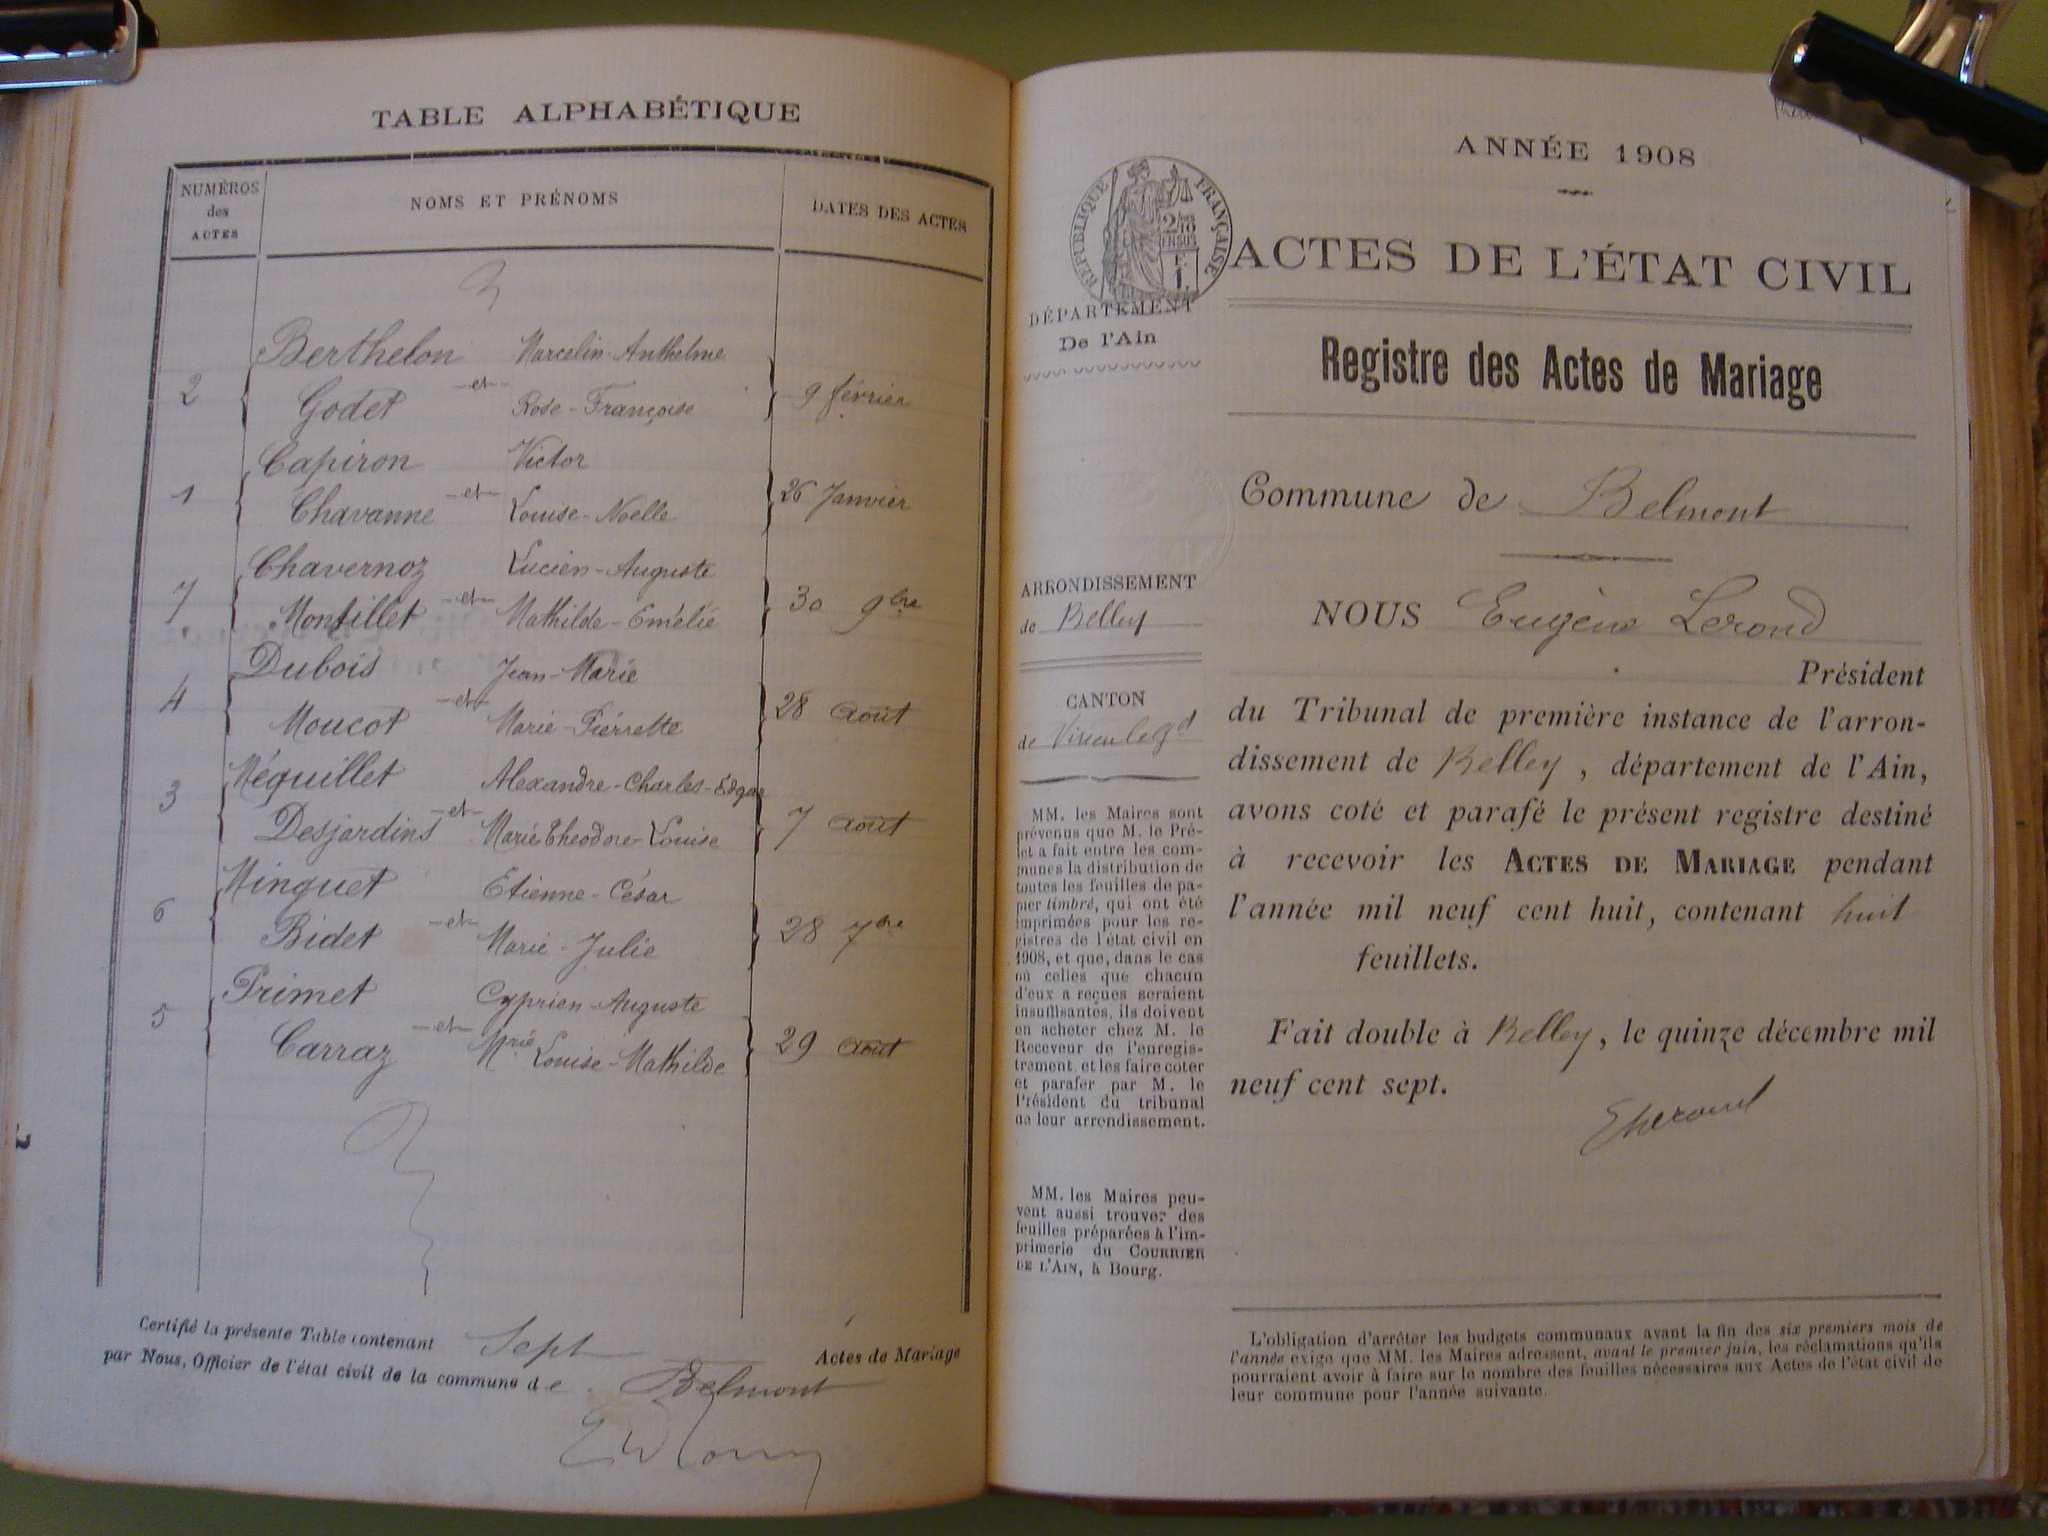 TABLE ALPHABÉTIQUE
NUMÉROS
des
ACTES
NOMS ET PRÉNOMS
DATES DES ACTES
Berthelon Marcelin-Anthelme
2 -et- 9 février
Godet Rose-Françoise
Capiron Victor
1 -et- 26 Janvier
Chavanne Louise-Noelle
Chavernoz Lucien-Auguste
7 -et- 30 9bre
Montillet Mathilde-Emélie
Dubois Jean-Marie
4 -et- 28 août
Moucot Marie-Pierrette
Méquillet Alexandre-Charles-Edgar
3 -et- 7 août
Desjardins Marie Théodore-Louise
Minguet Etienne-César
6 -et- 28 7bre
Bidet Marie-Julie
Primet Cyprien-Auguste
5 -et- 29 août
Carraz Mrie Louise-Mathilde
Certifié la présente Table contenant Sept Actes de Mariage
par Nous, Officier de l'état civil de la commune de Belmont
ANNÉE 1908
RÉPUBLIQUE FRANÇAISE
ACTES DE L'ÉTAT CIVIL
DÉPARTEMENT
De l'Ain
Registre des Actes de Mariage
Commune de Belmont
ARRONDISSEMENT
de Belley
CANTON
de Virieu le Gd
MM. les Maires sont
prévenus que M. le Pré-
fet a fait entre les com-
munes la distribution de
toutes les feuilles de pa-
pier timbré, qui ont été
imprimées pour les re-
gistres de l'état civil en
1908, et que, dans le cas
où celles que chacun
d'eux a reçues seraient
insuffisantes, ils doivent
en acheter chez M. le
Receveur de l'enregis-
trement, et les faire coter
et parafer par M. le
Président du tribunal
de leur arrondissement.
MM. les Maires peu-
vent aussi trouver des
feuilles préparées à l'im-
primerie du COURRIER
DE L'AIN, à Bourg.
NOUS Eugène Lerond
Président
du Tribunal de première instance de l'arron-
dissement de Belley, département de l'Ain,
avons coté et parafé le présent registre destiné
à recevoir les ACTES DE MARIAGE pendant
l'année mil neuf cent huit, contenant huit
feuillets.
Fait double à Belley, le quinze décembre mil
neuf cent sept.
L'obligation d'arrêter les budgets communaux avant la fin des six premiers mois de
l'année exige que MM. les Maires adressent, avant le premier juin, les réclamations qu'ils
pourraient avoir à faire sur le nombre des feuilles nécessaires aux Actes de l'état civil de
leur commune pour l'année suivante.